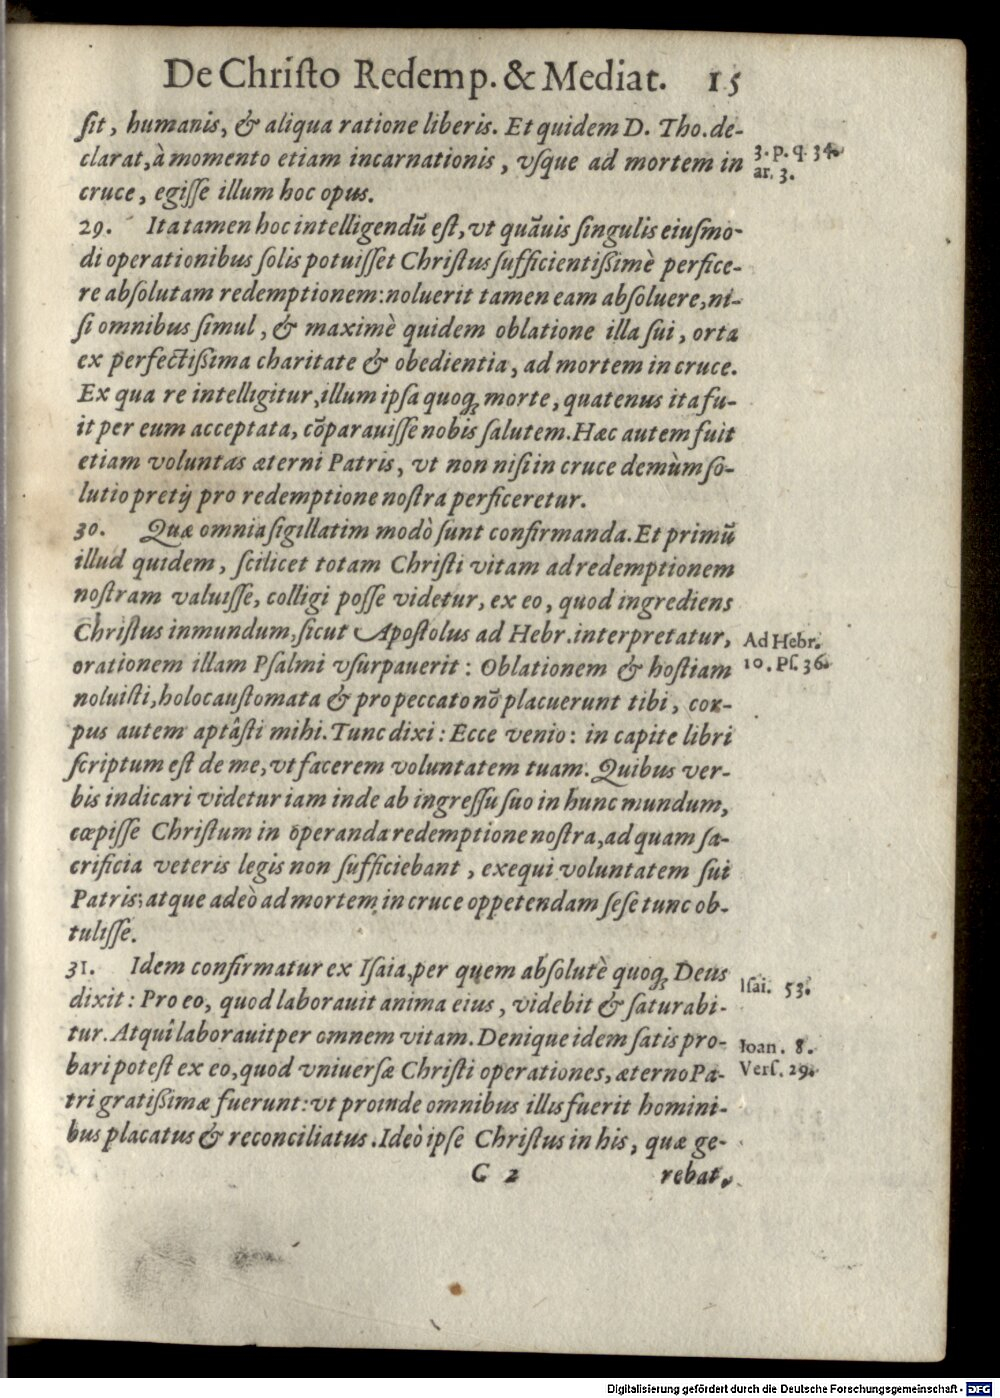 De Christo Redemp. & Mediat. 15
sit, humanis, & aliqua ratione liberis. Et quidem D. Tho. de-
clarat, à momento etiam incarnationis, vsque ad mortem in
3. p. q. 34.
ar. 3.
cruce, egisse illum hoc opus.
29. Ita tamen hoc intelligendū est, vt quāuis singulis eiusmo-
di operationibus solis potuisset Christus sufficientißimè perfice-
re absolutam redemptionem: noluerit tamen eam absoluere, ni-
si omnibus simul, & maximè quidem oblatione illa sui, orta
ex perfectißima charitate & obedientia, ad mortem in cruce.
Ex qua re intelligitur, illum ipsa quoq; morte, quatenus ita fu-
it per eum acceptata, cōparauisse nobis salutem. Hæc autem fuit
etiam voluntas æterni Patris, vt non nisi in cruce demùm so-
lutio pretij pro redemptione nostra perficeretur.
30. Quæ omnia sigillatim modò sunt confirmanda. Et primū
illud quidem, scilicet totam Christi vitam ad redemptionem
nostram valuisse, colligi posse videtur, ex eo, quod ingrediens
Christus in mundum, sicut Apostolus ad Hebr. interpretatur,
Ad Hebr.
orationem illam Psalmi vsurpauerit: Oblationem & hostiam
10. Ps. 36.
noluisti, holocaustomata & pro peccato nō placuerunt tibi, cor-
pus autem aptâsti mihi. Tunc dixi: Ecce venio: in capite libri
scriptum est de me, vt facerem voluntatem tuam. Quibus ver-
bis indicari videtur iam inde ab ingressu suo in hunc mundum,
cœpisse Christum in operanda redemptione nostra, ad quam sa-
crificia veteris legis non sufficiebant, exequi voluntatem sui
Patris; atque adeò ad mortem in cruce oppetendam sese tunc ob-
tulisse.
31. Idem confirmatur ex Isaia, per quem absolutè quoq; Deus
Isai. 53.
dixit: Pro eo, quod laborauit anima eius, videbit & saturabi-
tur. Atquî laborauit per omnem vitam. Denique idem satis pro-
Ioan. 8.
Vers. 29.
bari potest ex eo, quod vniuersæ Christi operationes, æterno Pa-
tri gratißimæ fuerunt: vt proinde omnibus illis fuerit homini-
bus placatus & reconciliatus. Ideò ipse Christus in his, quæ ge-
C 2 rebat,
Digitalisierung gefördert durch die Deutsche Forschungsgemeinschaft - DFG